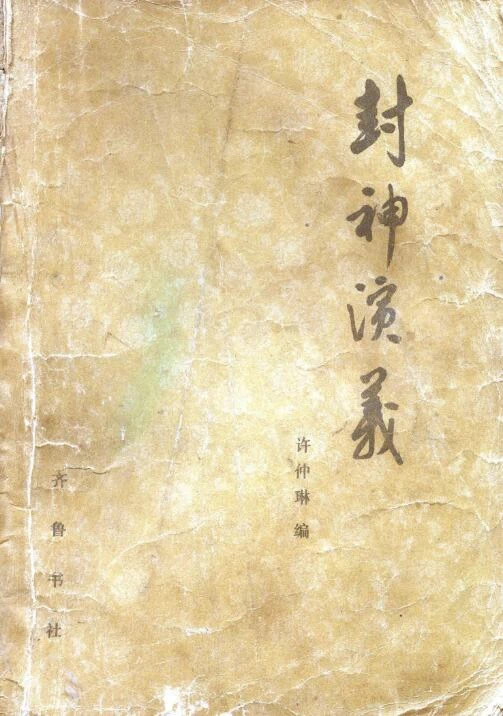 封神演義
许仲琳 编
齐鲁书社